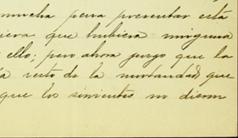 mucha pena presentar esta
iera que hubiera ninguna
ello; pero ahora juzgo que la
la resto de la mortandad, que
que los sirvientes no dieron